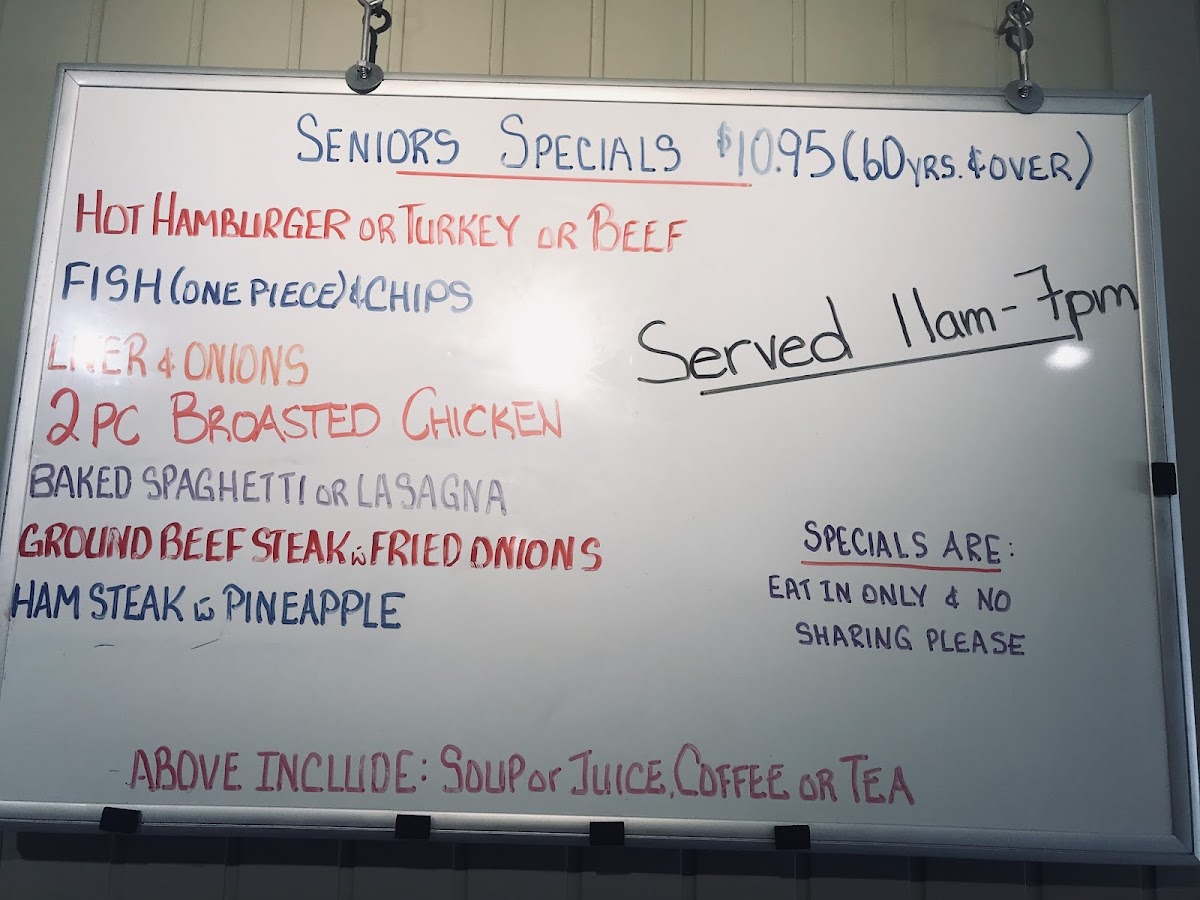 SENIORS SPECIALS $10.95 (60 YRS. & OVER)
HOT HAMBURGER OR TURKEY OR BEEF
FISH (ONE PIECE) & CHIPS
Served 11am-7pm
LIVER & ONIONS
2 PC BROASTED CHICKEN
BAKED SPAGHETTI OR LASAGNA
GROUND BEEF STEAK w FRIED ONIONS
HAM STEAK w PINEAPPLE
SPECIALS ARE:
EAT IN ONLY & NO
SHARING PLEASE
ABOVE INCLUDE: SOUP or JUICE, COFFEE OR TEA